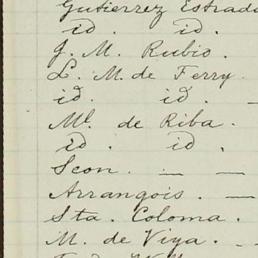 Gutierrez Estrada
id. id.
J. M. Rubio.
L. M. de Ferry
id. id. -
Ml. de Riba.
id. id.
Scon. — —
Arrangois. —
Sta. Coloma.
M. de Viya. - -